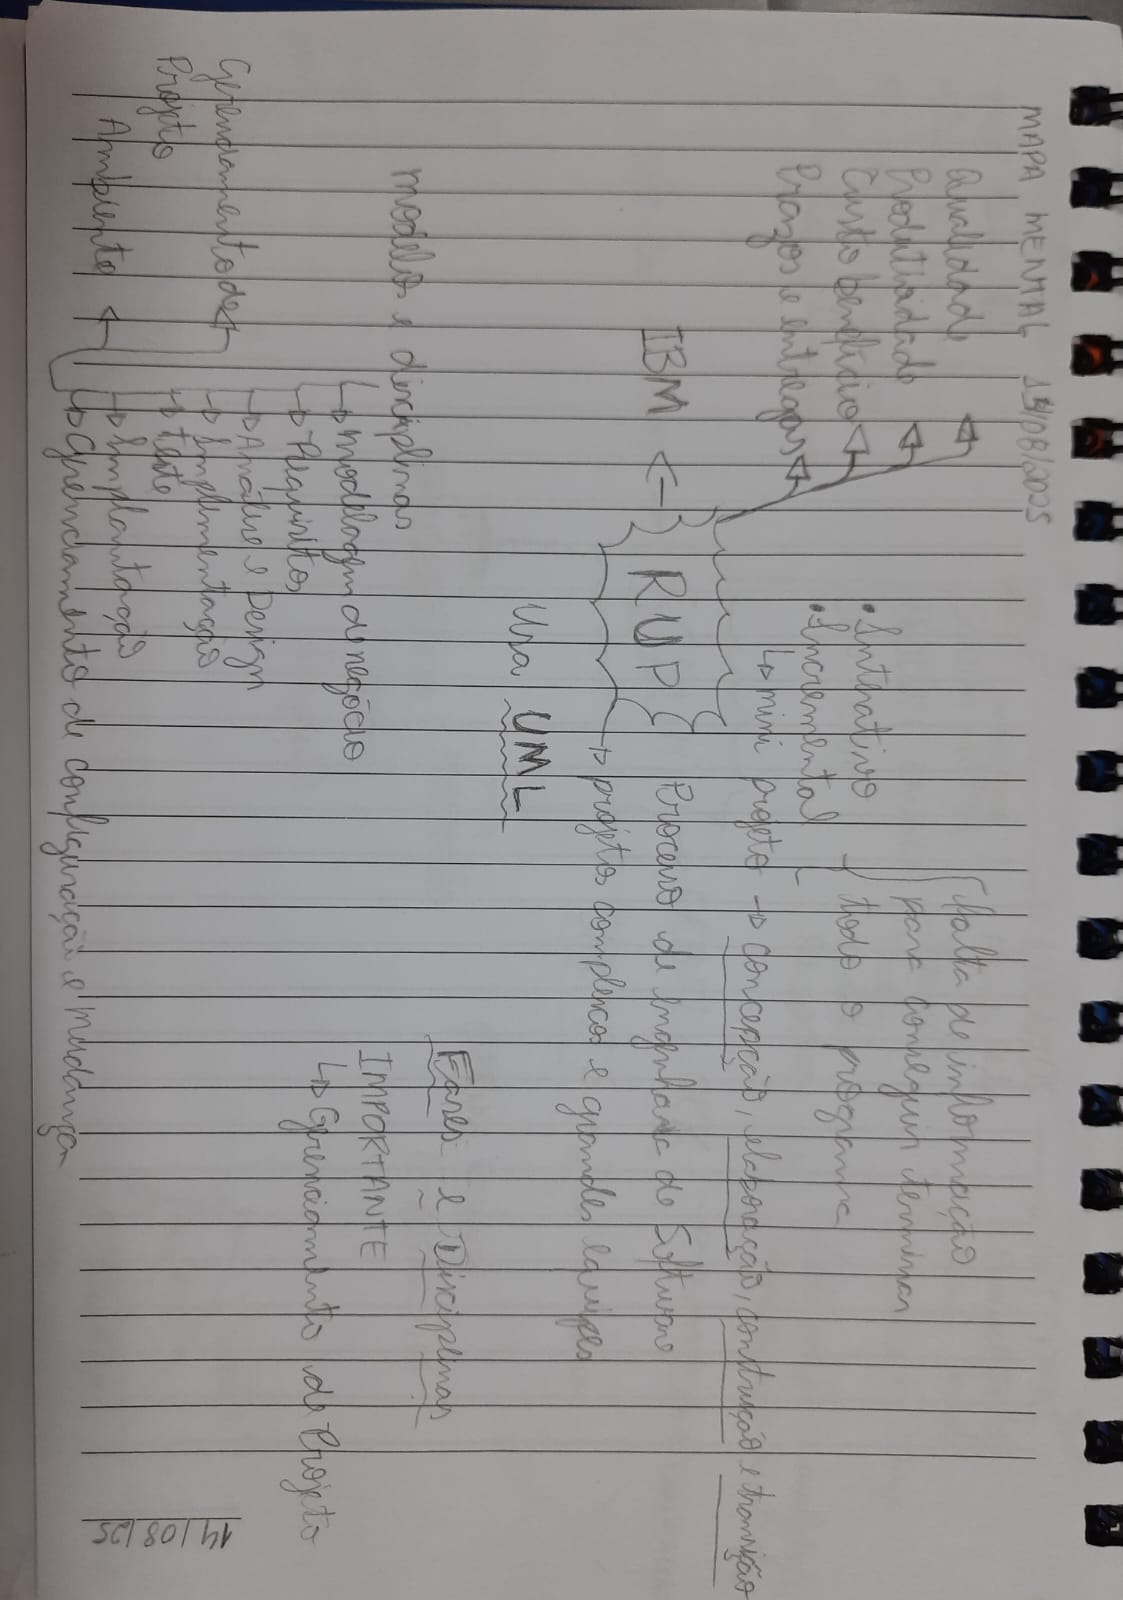 MAPA MENTAL 14/08/2025
Qualidade
Produtividade
Custo benefício
Prazos e entregas
• Interativo
• Incremental
falta de informação
para conseguir terminar
todo o programa
mini projeto → concepção, elaboração, construção e transição
IBM ← RUP
Processo de engenharia de Software
projetos complexos e grandes equipes
Usa UML
Fases e Disciplinas
IMPORTANTE
Gerenciamento de Projeto
modelos e disciplinas
modelagem de negócio
Requisitos
Análise e Design
Implementação
teste
Implantação
Gerenciamento de configuração e mudança
Gerenciamento de
Projeto
Ambiente
14/08/25